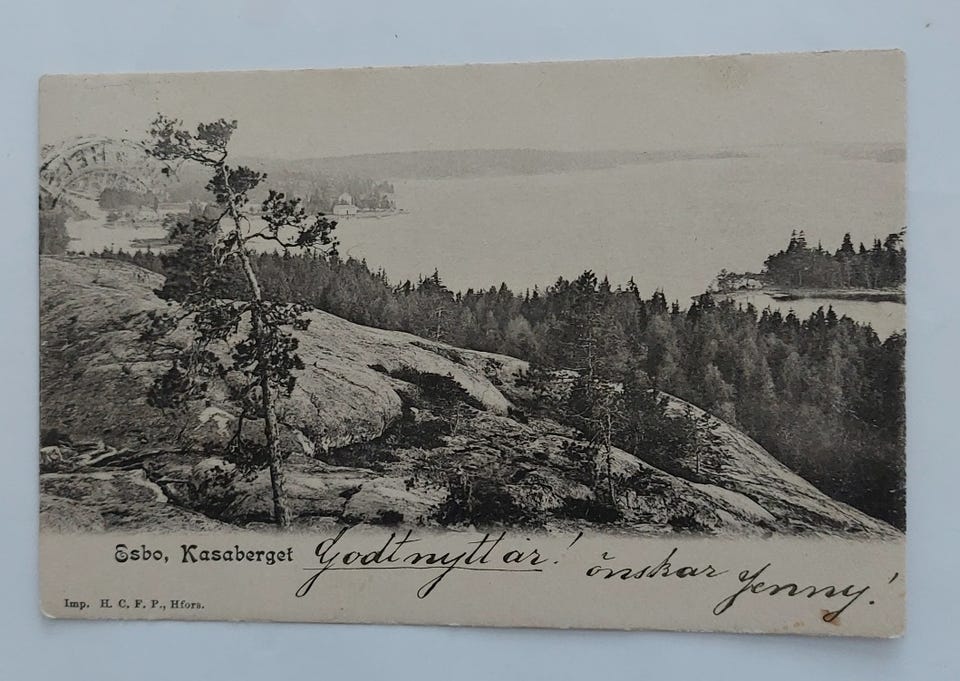 Esbo, Kasaberget
Godt nytt år! önskar Jenny!
Imp. H. C. F. P., Hfors.